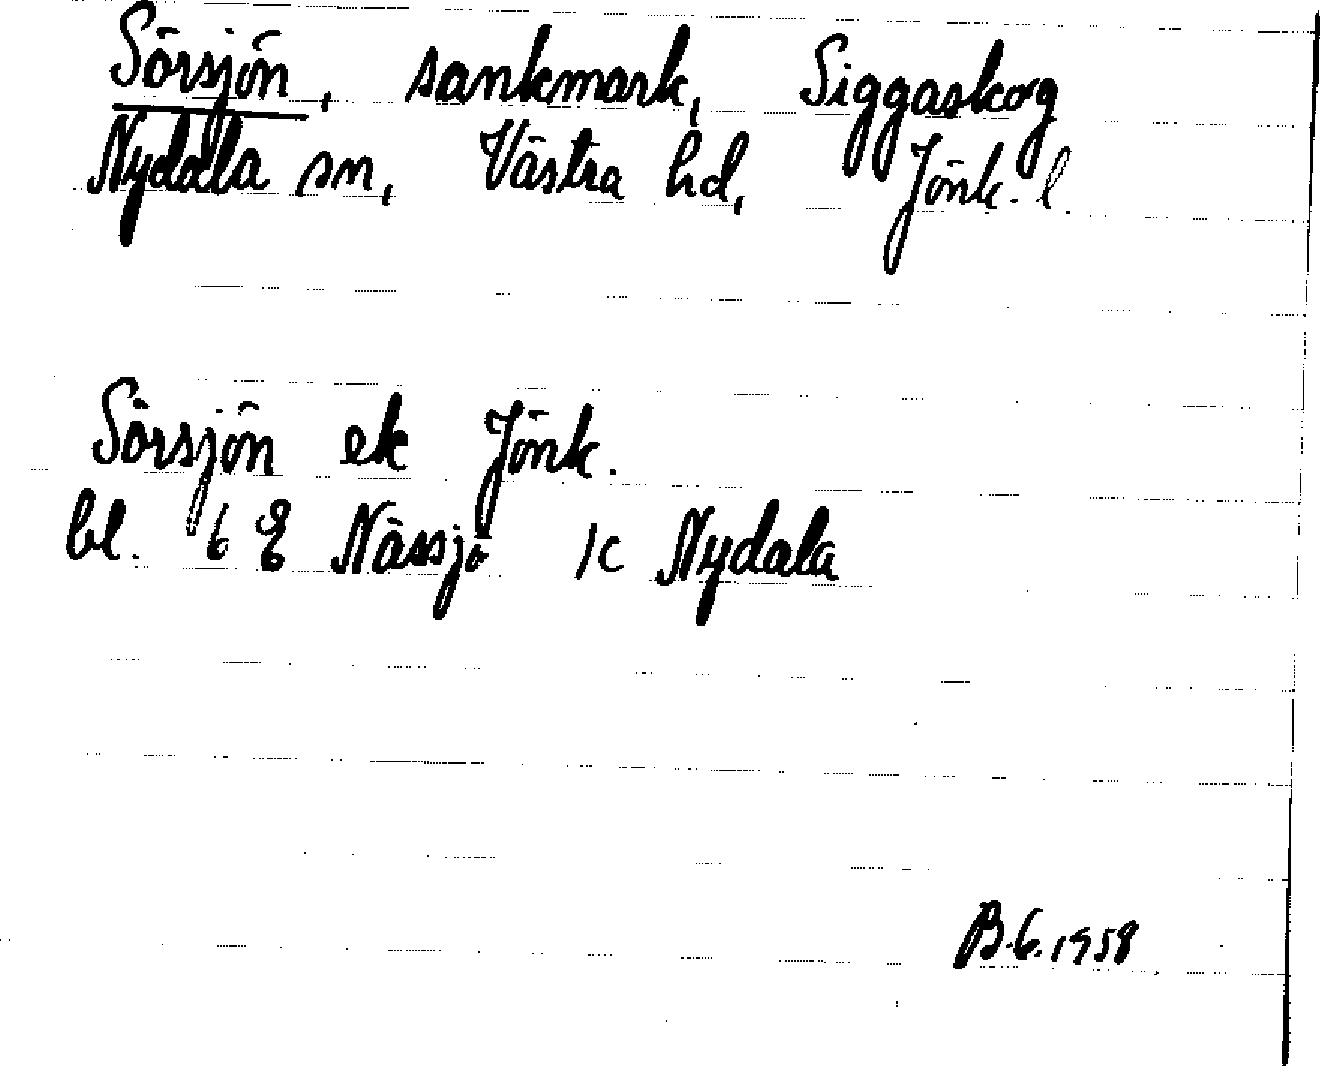 Sörsjön, sankmark, Siggaskog
Nydala sn, Västra hd, Jönk. l
Sörsjön ek Jönk.
bl. 6 E Nässjö 1c Nydala
B.G. 1958